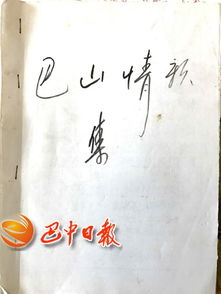 巴山情歌
集
巴中日报